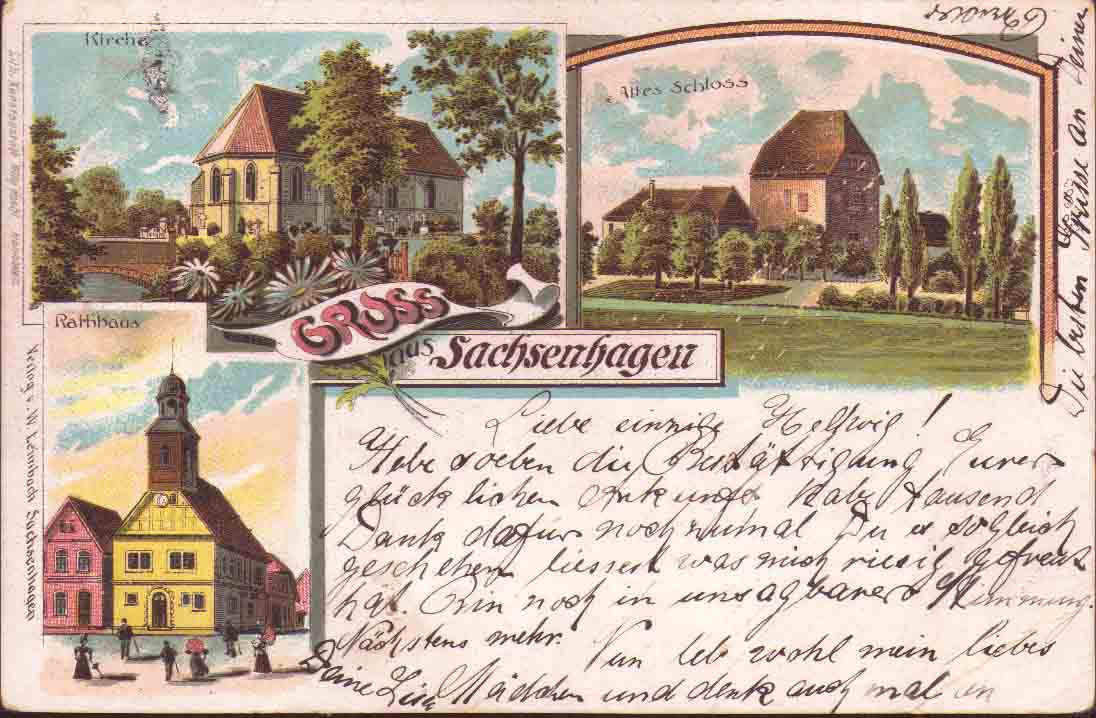 Kirche
Altes Schloss
Rathhaus
GRUSS
aus Sachsenhagen
Verlag v. W. Leimbach Sachsenhagen
Liebe einzige Hellwig!
Habe soeben die Bestättigung Eurer
glücklichen Ankunft habe tausend
Dank dafür nochzumal Du es sogleich
geschehen liessest was mich riesig gefreut
hat. Bin noch in unsagbarer Stimmung.
Nächstens mehr. Nun leb wohl mein liebes
Mädchen und denk auch mal an
Deine
Die besten Grüsse an Deine